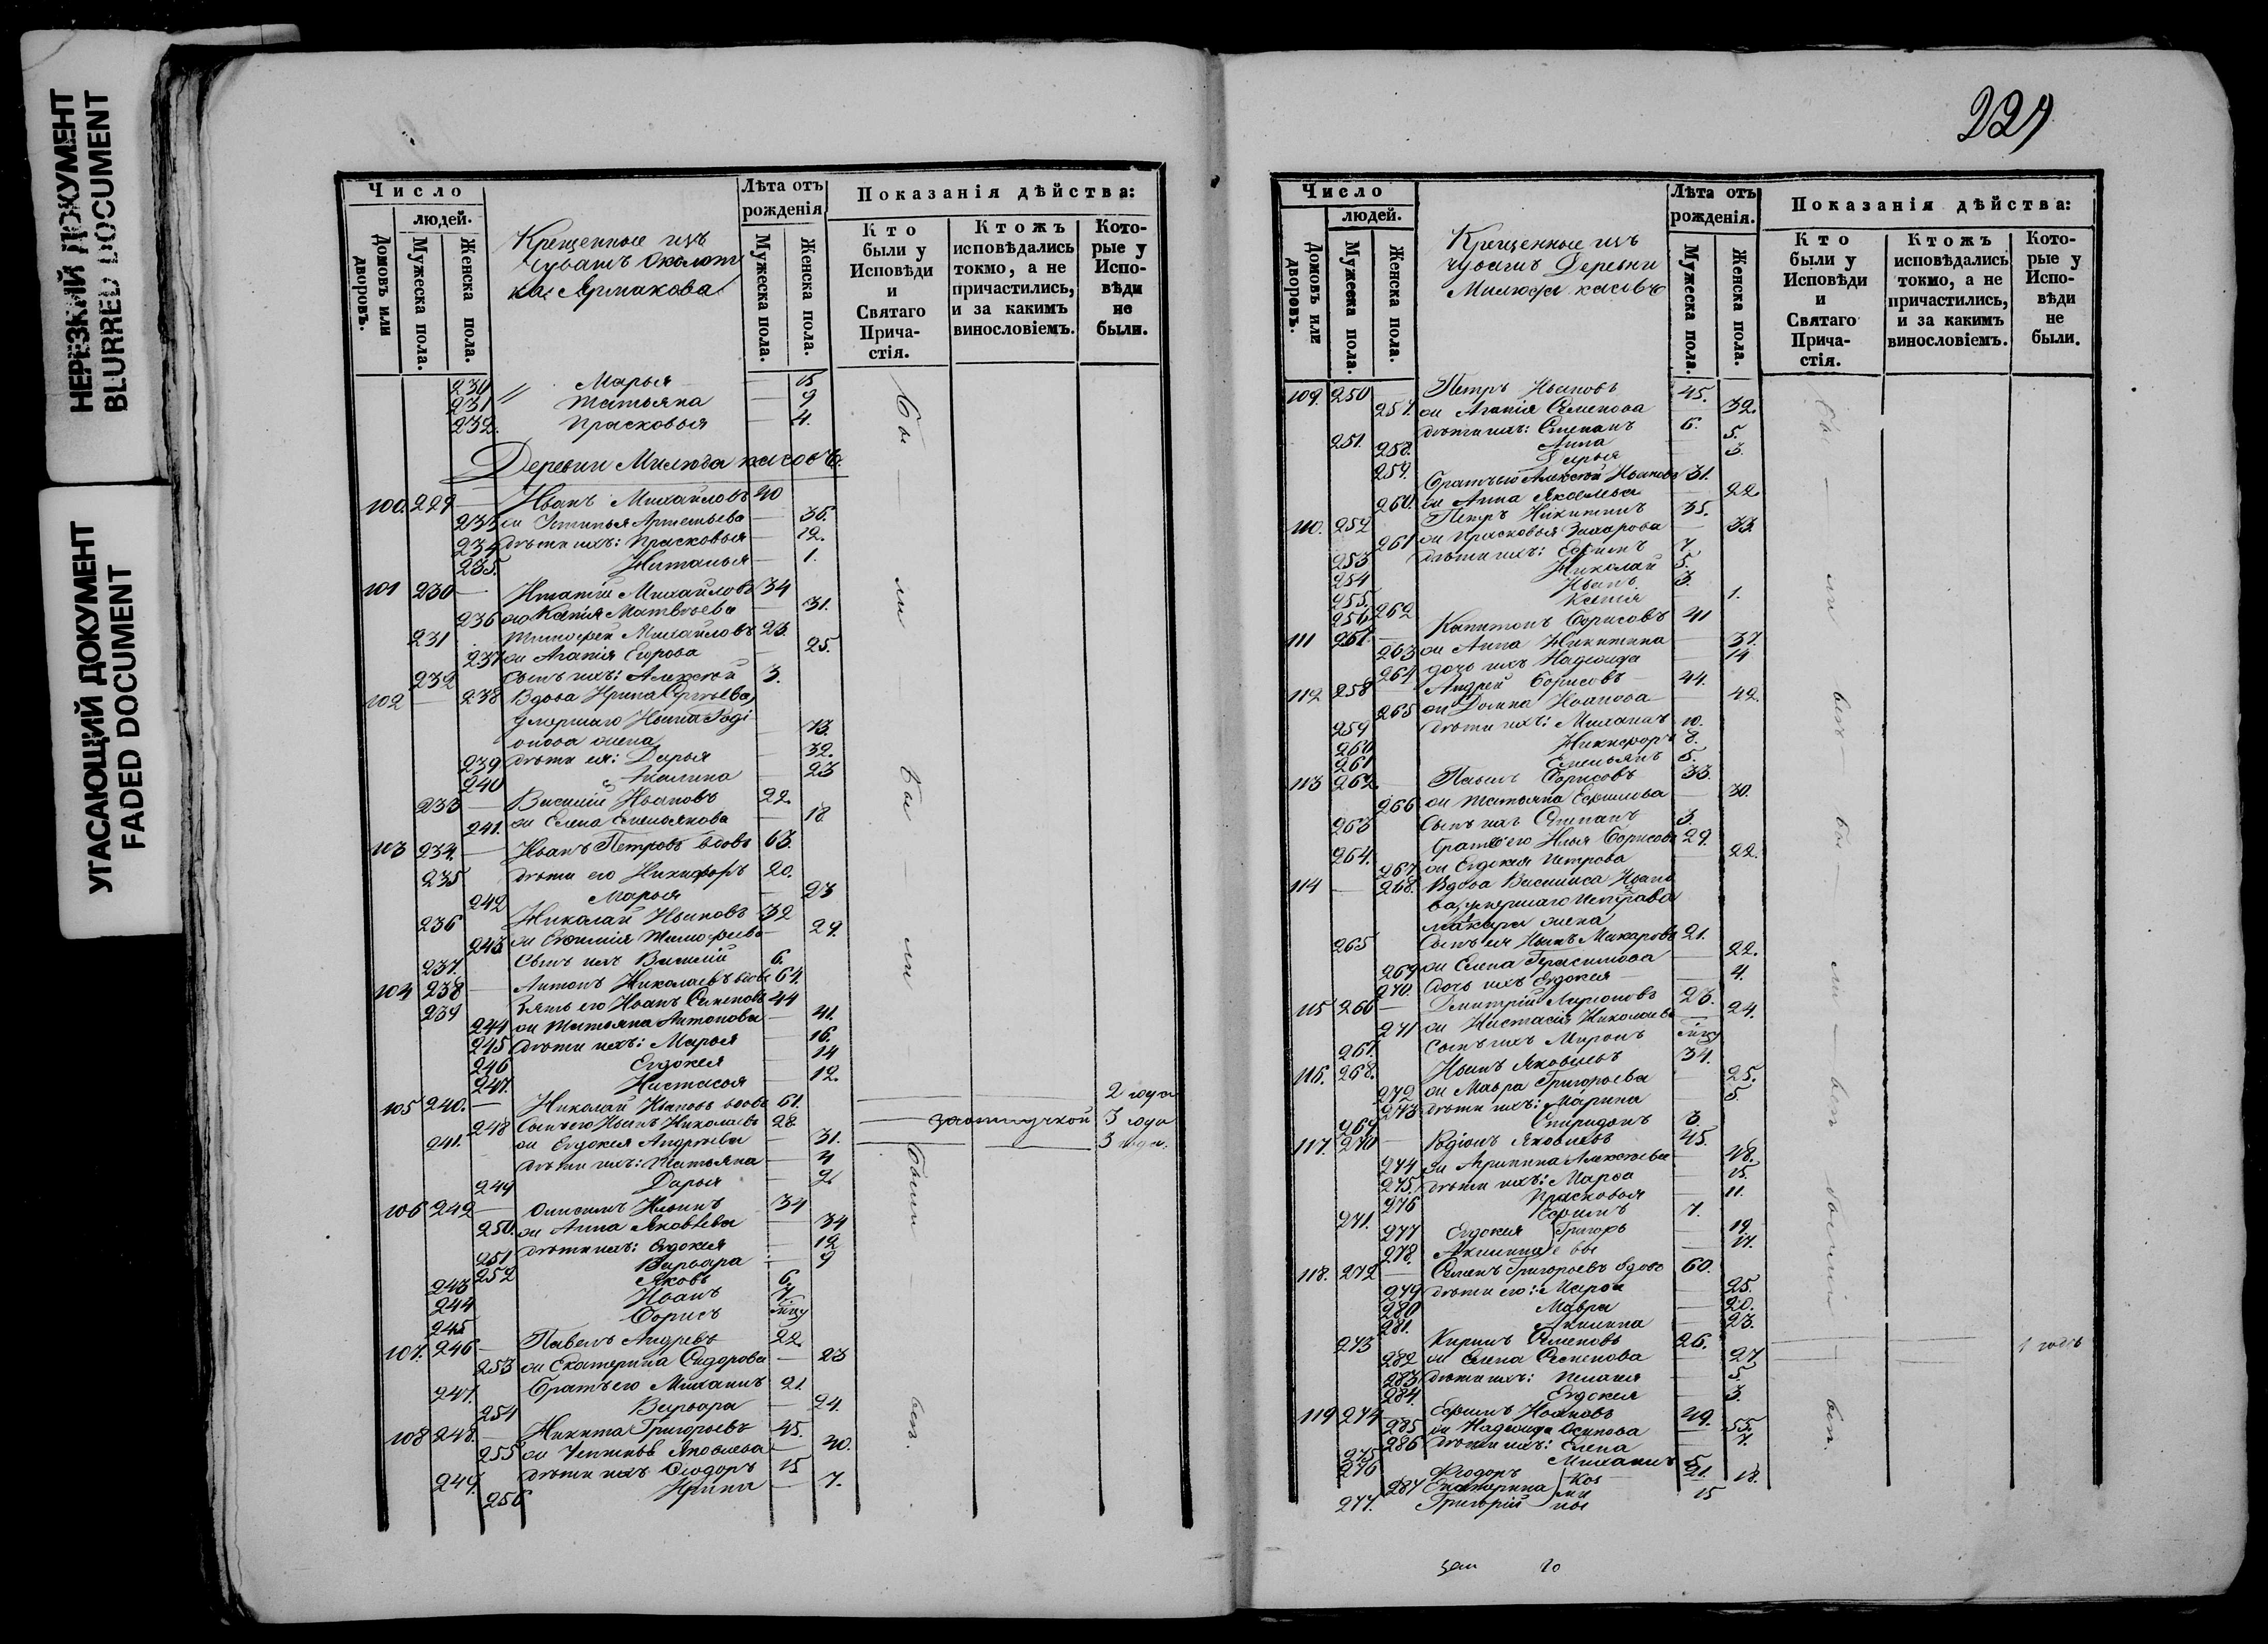 НЕРЕЗКИЙ ДОКУМЕНТ
BLURRED DOCUMENT
УГАСАЮЩИЙ ДОКУМЕНТ
FADED DOCUMENT
Число
людей.
Домовъ или дворовъ.
Мужеска пола.
Женска пола.
Крещенные изъ
Чувашъ Околот
ка Ярмакова
Лѣта отъ рожденія
Мужеска пола.
Женска пола.
Показанія дѣйства:
Кто были у Исповѣди и Святаго Причастія.
Ктожъ исповѣдались токмо, а не причастились, и за какимъ винословіемъ.
Которые у Исповѣди не были.
230 " Марья — 15
231 Татьяна — 9
232. Прасковья — 4.
Деревни Милюдакасовъ.
100. 229 — Иванъ Михайловъ 40
233 ж Устинья Артемьева — 36.
234 дѣти ихъ: Прасковья — 12.
235. Наталья — 1.
101 230 — Игнатій Михайловъ 34
236 жо Ксенія Матвѣева — 31.
231 Тимофей Михайловъ 23.
237 ж Агапія Егорова — 25.
232 Сынъ ихъ: Алексѣй 3.
102 — 238 Вдова Ирина Сергѣева,
умершаго Ивана Роді
онова жена — 73.
239 дѣти ея: Дарья — 32.
240 Акилина — 23
233 — Василій Ивановъ 22.
241. ж Елена Емельянова — 18
103 234. — Иванъ Петровъ вдовъ 63.
235 дѣти его Никифоръ 20.
242 Марья — 23
236 Николай Ивановъ 32
243 ж Евѳимія Тимофеева — 29.
237. Сынъ ихъ Василій 6.
104 238 — Антонъ Николаевъ вдовъ 64.
239 Зять его Иванъ Семеновъ 44
244 ж Татьяна Антонова — 41.
245 дѣти ихъ: Марья — 16.
246 Евдокея — 14
247. Настасья — 12.
105 240. — Николай Ивановъ вдовъ 61. 2 года
248 Сынъ его Иванъ Николаевъ 28. — заотлучкой 3 года
241. ж Евдокея Андреева — 31. 3 года.
дѣти ихъ: Татьяна — 4
249 Дарья — 2.
106 242 — Онисимъ Ильинъ 34
250. ж Анна Яковлева — 34
251 дѣти ихъ: Евдокея — 12
252 Варвара — 9
243 Яковъ 6.
244 Иванъ 4.
245 Борисъ
107. 246 — Павелъ Андреевъ 22.
253 ж Екатерина Сидорова — 23
247. Братъ его Михаилъ 21.
254 Варвара — 24.
108 248. — Никита Григорьевъ 45.
255 ж Яковлева — 40.
249. дѣти ихъ Ѳеодоръ 15
256 Ирина — 7.
бы — ли — вы — ли
были
вси.
Число
людей.
Домовъ или дворовъ.
Мужеска пола.
Женска пола.
Крещенные изъ
чувашъ Деревни
Милюдакасовъ
Лѣта отъ рожденія.
Мужеска пола.
Женска пола.
Показанія дѣйства:
Кто были у Исповѣди и Святаго Причастія.
Ктожъ исповѣдались токмо, а не причастились, и за какимъ винословіемъ.
Которые у Исповѣди не были.
109. 250 — Петръ Ивановъ 45.
257. ж Агапія Семенова — 32.
251. дѣти ихъ: Степанъ 6.
258. Анна — 5.
259. Дарья — 3.
Братъ его Алексѣй Ивановъ 31.
260. ж Анна Яковлева — 22.
110. 252 — Петръ Никитинъ 35.
261 ж Прасковья Захарова — 33.
253 дѣти ихъ: Ефимъ 7.
254 Николай 5.
255. Иванъ 3.
256 262 Ксенія — 1.
111 257. — Капитонъ Борисовъ 41
263 ж Анна Никитина — 37.
264 дочь ихъ Надежда — 14
112 258 — Андрей Борисовъ 44.
265 ж Домна Иванова — 42.
259 дѣти ихъ: Михаилъ 10.
260 Никифоръ 8.
261 Емельянъ 5.
113 262. — Павелъ Борисовъ 33.
266 ж Татьяна Ефимова — 30.
263 Сынъ ихъ Степанъ 3.
264. Братъ его Илья Борисовъ 29.
267 ж Евдокея Петрова — 22.
114 — 268. Вдова Василиса Ивано
ва, умершаго Петрова
Макара жена
265 Сынъ ея Иванъ Макаровъ 21.
269 ж Елена Герасимова — 22.
270. дочь ихъ Евдокея — 4.
115 266 — Дмитрій Ларіоновъ 23.
271 ж Настасія Николаева — 24.
267. Сынъ ихъ Миронъ
116. 268. — Иванъ Яковлевъ 34.
272 ж Мавра Григорьева — 25.
273 дѣти ихъ: Марина — 5.
269 Спиридонъ 3.
117. 270 — Родіонъ Яковлевъ 45.
274 ж Агрипина Алексѣева — 48.
275. дѣти ихъ: Марѳа — 15.
276 Прасковья — 11.
271. Ефимъ 7.
277 Евдокея Григорь — 19.
278. Акилина е вы — 17.
118. 272 — Семенъ Григорьевъ вдовъ 60.
279 дѣти его: Марѳа — 25.
280 Мавра — 20.
281. Акилина — 23.
273 Кирилъ Семеновъ 26. 1 годъ
282 ж Елена Семенова — 27
283 дѣти ихъ: Пелагея — 5.
284. Евдокея — 3.
119 274 — Ефимъ Ивановъ 49.
285 ж Надежда Осипова — 55.
286 дѣти ихъ: Елена — 7.
275 Михаилъ 5.
276 Ѳеодоръ 21.
287 Екатерина — 18.
277. Григорій 15
бы — ли — вси — бы — ли — вси
вси.